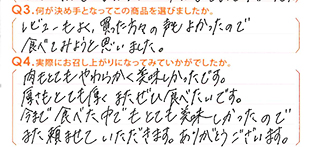 Q3.何が決め手となってこの商品を選びましたか。
レビューもよく、買った方々の声もよかったので
食べてみようと思いました。
Q4.実際にお召し上がりになってみていかがでしたか。
肉もとてもやわらかく美味しかったです。
厚さもとても厚く またぜひ食べたいです。
今まで食べた中でもとても美味しかったので
また頼ませていただきます。ありがとうございます。